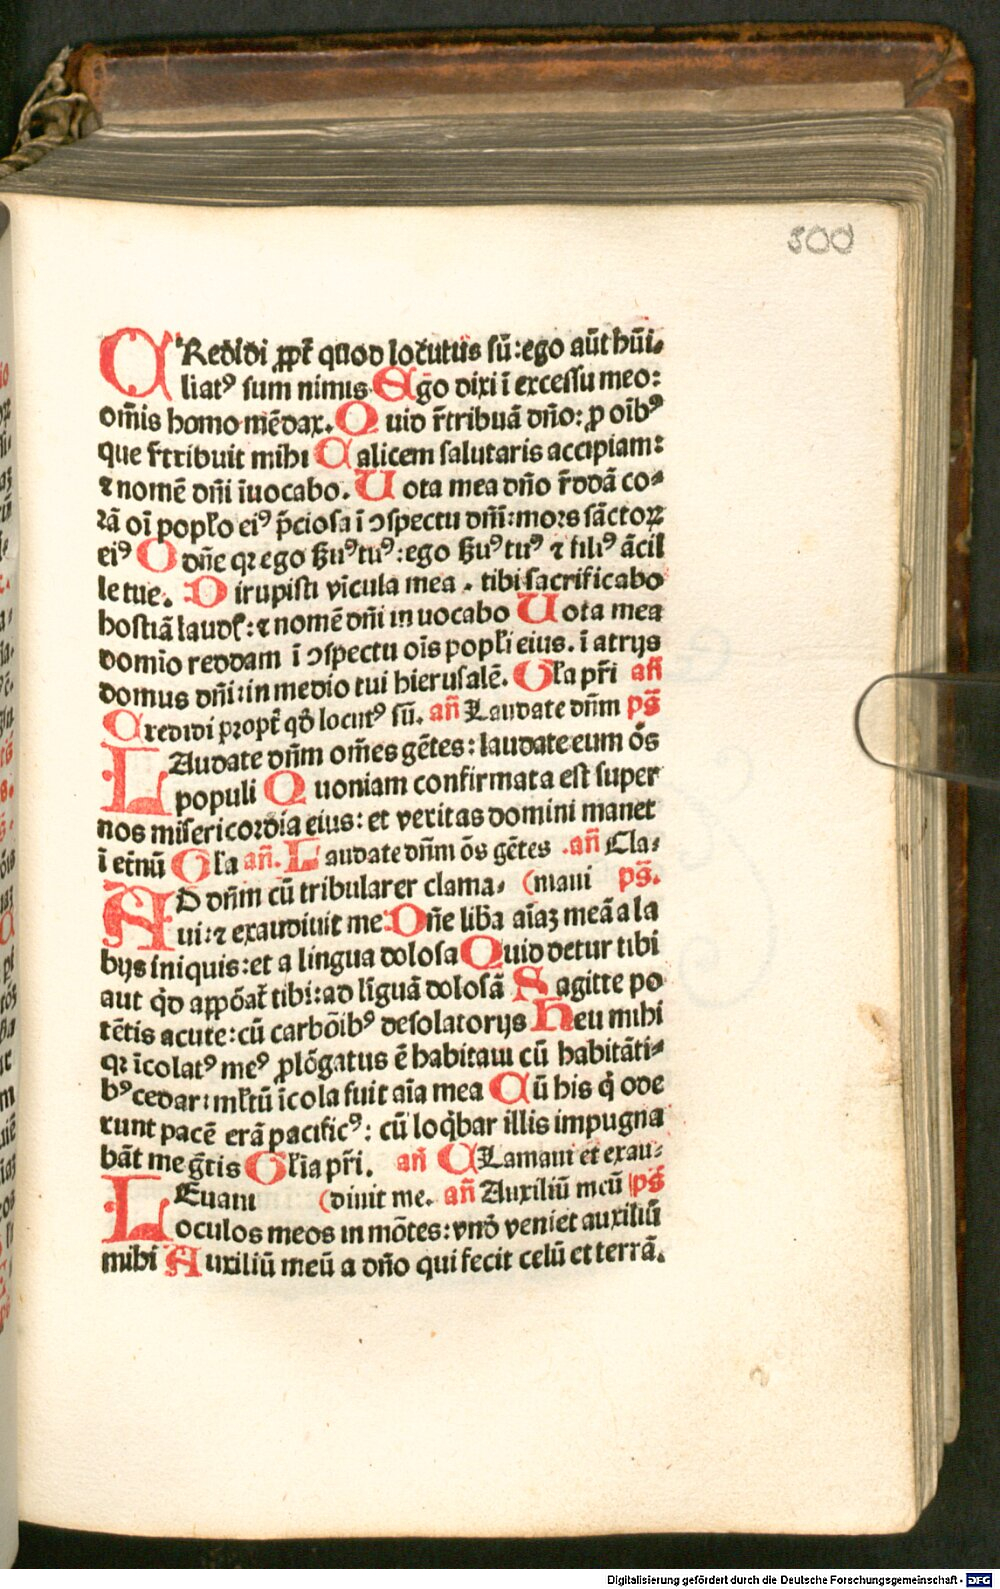 500
CRedidi ꝓpt̄ quod locutus sū: ego aūt hūi⸗
liatꝰ sum nimis Ego dixi ī excessu meo:
om̄is homo mēdax. Quid r̄tribuā dn̄o: ꝓ oībꝰ
que r̄tribuit mihi Calicem salutaris accipiam:
⁊ nomē dn̄i īuocabo. Uota mea dn̄o r̄ddā co⸗
rā oī popl̓o eiꝰ p̄ciosa ī ↄspectu dn̄i: mors sāctoꝝ
eiꝰ O dn̄e qꝛ ego ẜuꝰ tuꝰ: ego ẜuꝰ tuꝰ ⁊ filiꝰ ācil
le tue. Dirupisti vīcula mea. tibi sacrificabo
hostiā laudꝭ: ⁊ nomē dn̄i in uocabo Uota mea
domīo reddam ī ↄspectu oīs popl̓i eius. ī atrijs
domus dn̄i: in medio tui hierusalē. Gl̓a pr̄i an̄
Credidi propt̄ qd̓ locutꝰ sū. an̄ Laudate dn̄m ps̄
LAudate dn̄m om̄es gētes: laudate eum ōs
populi Quoniam confirmata est super
nos misericordia eius: et veritas domini manet
ī etn̄ū Gl̓a an̄. Laudate dn̄m ōs gētes . an̄ Cla⸗
AD dn̄m cū tribularer clama⸗ (maui ps̄.
ui: ⁊ exaudiuit me Dn̄e lib̄a aīaꝫ meā a la
bijs iniquis: et a lingua dolosa Quid detur tibi
aut qd̓ appōat̄ tibi: ad līguā dolosā Sagitte po
tētis acute: cū carbōibꝰ desolatorijs Heu mihi
qꝛ īcolatꝰ meꝰ ꝓlōgatus ē habitaui cū habitāti⸗
bꝰ cedar: ml̓tū īcola fuit aīa mea Cū his q̓ ode
runt pacē erā pacificꝰ: cū loq̓bar illis impugna
bāt me gr̄tis Gl̓ia pr̄i. an̄ Clamaui et exau⸗
LEuaui (diuit me. an̄ Auxiliū meū ps̄
oculos meos in mōtes: vnd̓ veniet auxiliū
mihi Auxiliū meū a dn̄o qui fecit celū et terrā.
Digitalisierung gefördert durch die Deutsche Forschungsgemeinschaft - DFG